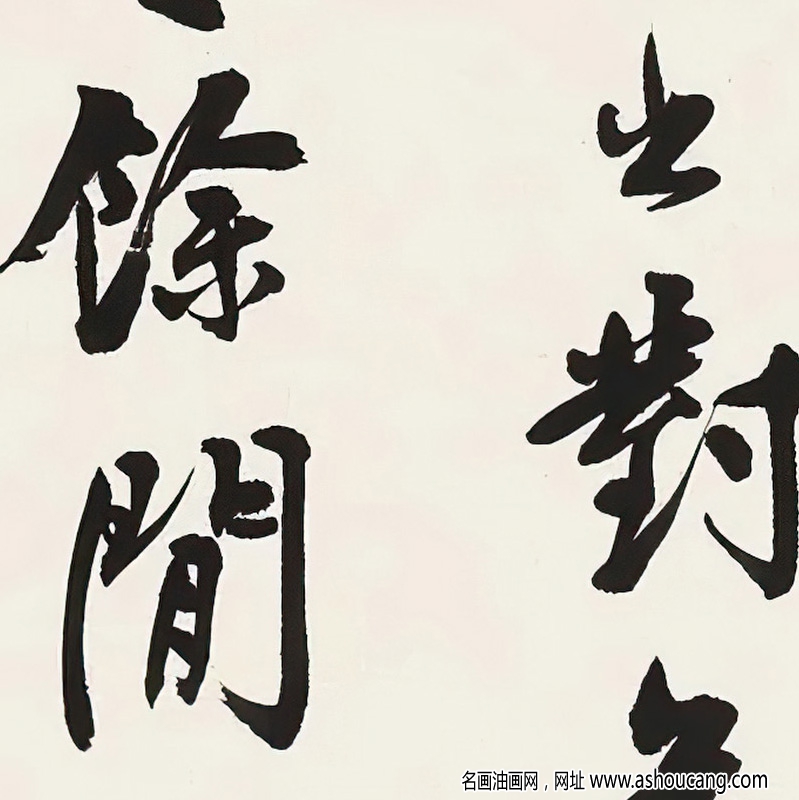 出對
餘閒
名画油画网，网址 www.ashoucang.com